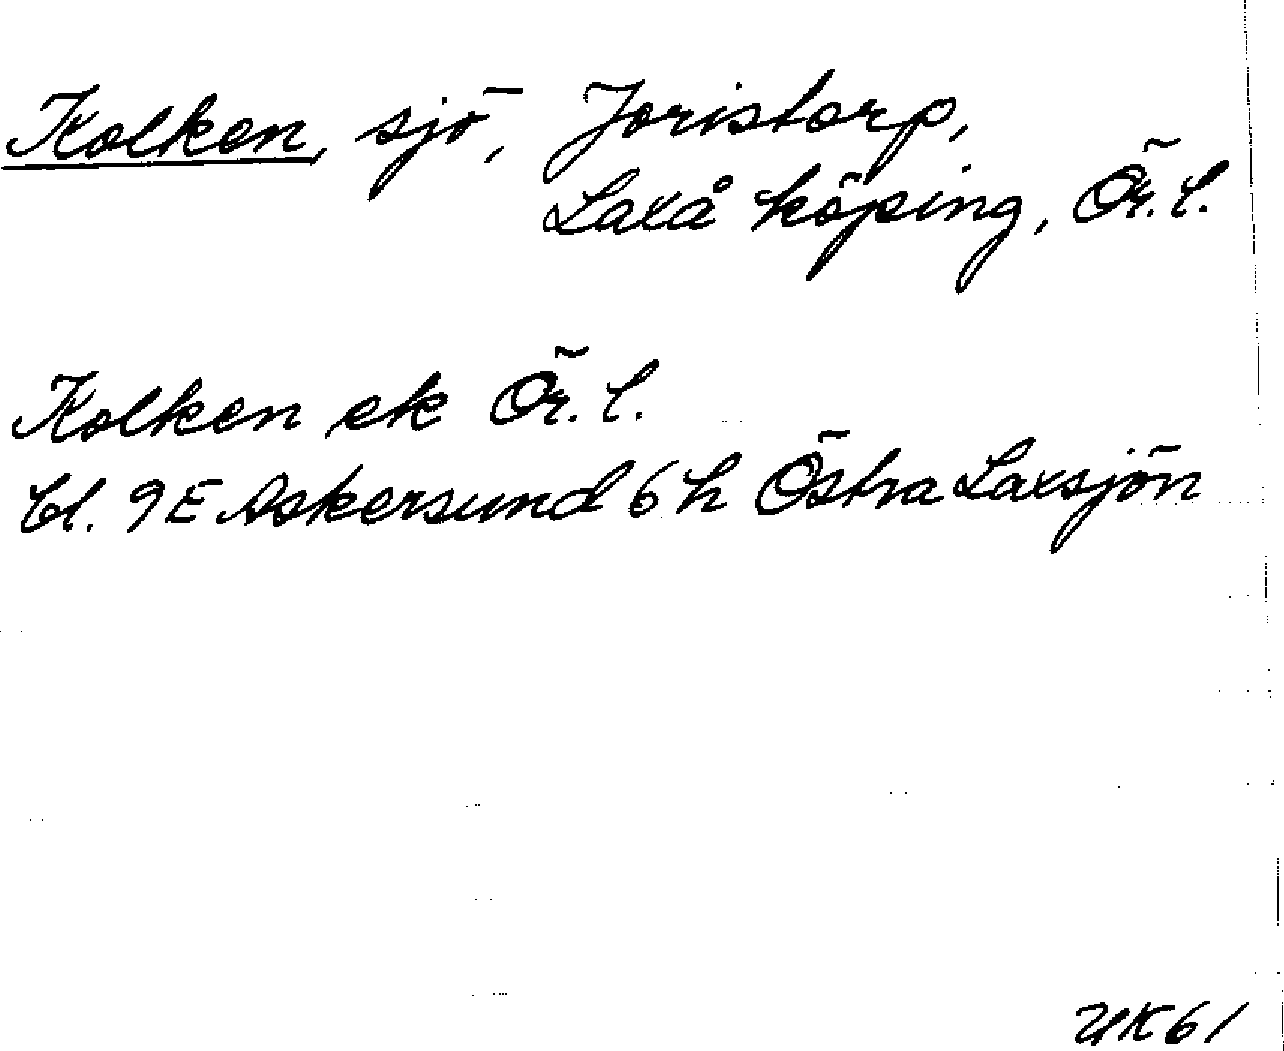 Kolken, sjö, Joristorp,
Laxå köping, Ör. l.
Kolken ek Ör. l.
bl. 9E Askersund 6 h Östra Laxsjön
UK61